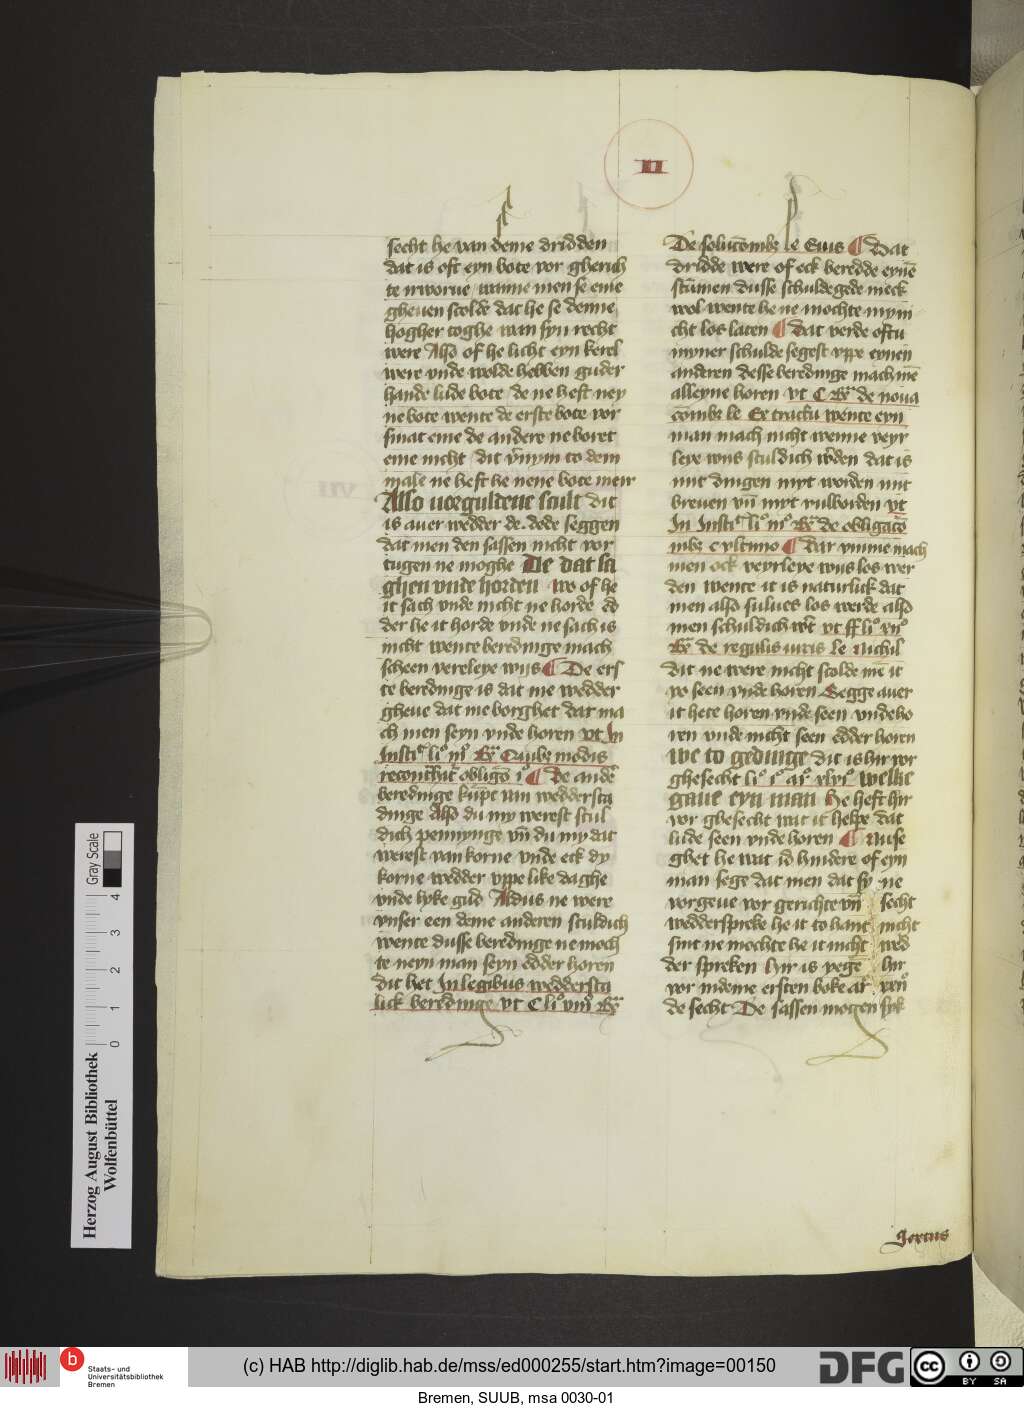 II
secht he van deme dridden
dat is oft eyn bote vor gherich
te irworue wanne men se eme
gheuen scolde dat he se denne
hogher toghe wan syn recht
were Also of he licht eyn kerel
were vnde wolde hebben guder
hande lude bote de ne heft ney
ne bote wente de erste bote vor
sinat eme de andere ne boret
eme nicht dit vͦnym to dem
male ne heft he nene bote meir
Also vorguldene scult dit
is auer wedder de dode seggen
dat men den sassen nicht vor
tugen ne moghe De dat sa
ghen vnde horden wo of he
it sach vnde nicht ne horde ed
der he it horde vnde ne sach is
nicht wente beredinge mach
scheen vereleye wijs ¶ De ers
te beredinge is dat me wedder
gheue dat me borghet dat ma
ch men seyn vnde horen vt In
Instiᵗ liͦ iijͦ Rͨ Quibꝫ modis
¶ De andē
beredinge kūpt van weddersta
dinge Also du my werest scul
dich pennynge vn̄ du my dat
werest van korne vnde eck dy
korne wedder vppe like daghe
vnde lyke gud Aldus ne were
vnser een deme anderen sculdich
wente dusse beredinge ne moch
te neyn man seyn edder horen
dit het In legibus weddersta
lick beredinge vt C liͦ viijͦ Rͨ
De soluc̄ombꝫ le Euis ¶ Dat
dridde were of eck beredde eyne
stūmen dusse schuldegede meck
wol wente he ne mochte mym
cht los laten ¶ Dat verde oftu
myner schulde segest vppe eynen
anderen desse beredinge mach mē
alleyne horen vt C Rͨ de noua
c̄ombꝫ le Ex tractu wente eyn
man mach nicht wenne veyr
leye wijs sculdich w̄den dat is
mit dingen myt worden mit
breuen vn̄ myt vulborden vt
In Instiᵗ liͦ iijͦ Rͨ de obligac̄o
nibꝫ c vltimo ¶ Dar vmme mach
men ock veyrleye wijs los wer
den wente it is naturlick dat
men also sulues los werde also
men schuldich w̄t vt ff liͦ xijͦ
Rͨ de regulis iuris le Nichil
Dit ne were nicht scolde mē it
vo seen vnde horen Segge auer
it hete horen vnde seen vnde ho
ren vnde nicht seen edder horen
We to gedinge dit is hir vor
ghesecht liͦ iͦ arͦ xlviͦ Welke
gaue eyn man He heft hir
vor ghesecht wat it helpe dat
lude seen vnde horen ¶ Nu se
ghet he wat id hindere of eyn
man sege dat men dat sy ne
vorgeue vor gerichte vn̄ secht
weddersprekе he it to hant nicht
sint ne mochte he it nicht wed
der spreken hir is vege hir
vor in deme ersten boke ar xxnͦ
de secht De sassen mogen syk